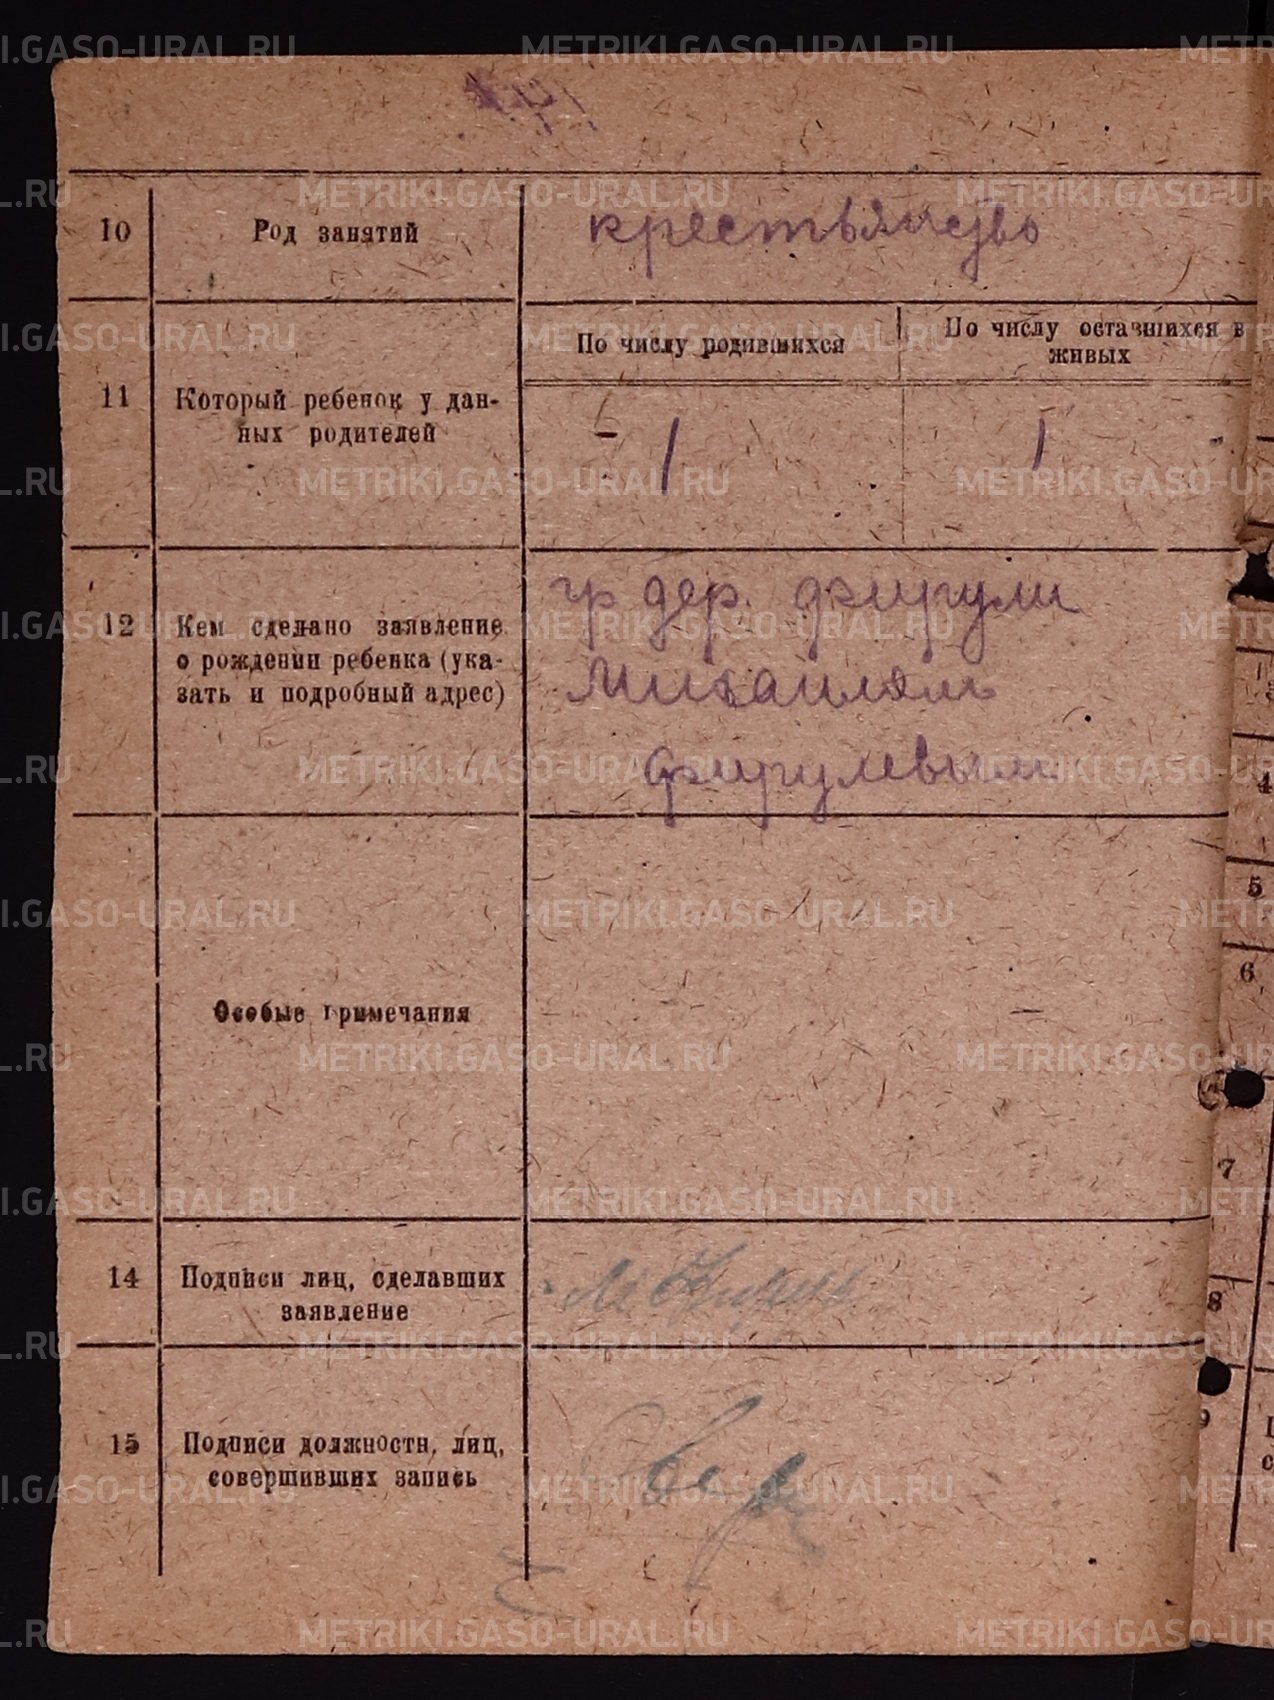 10 Род занятий крестьянство
По числу родившихся По числу оставшихся в
живых
11 Который ребенок у дан-
ных родителей
1 1
12 Кем сделано заявление
о рождении ребенка (ука-
зать и подробный адрес)
гр дер. Фигули
Михаилом
Фигулевым
Особые примечания
—
14 Подписи лиц, сделавших
заявление
15 Подписи должностн, лиц,
совершивших запись
4
5
6
7
8
9
METRIKI.GASO-URAL.RU